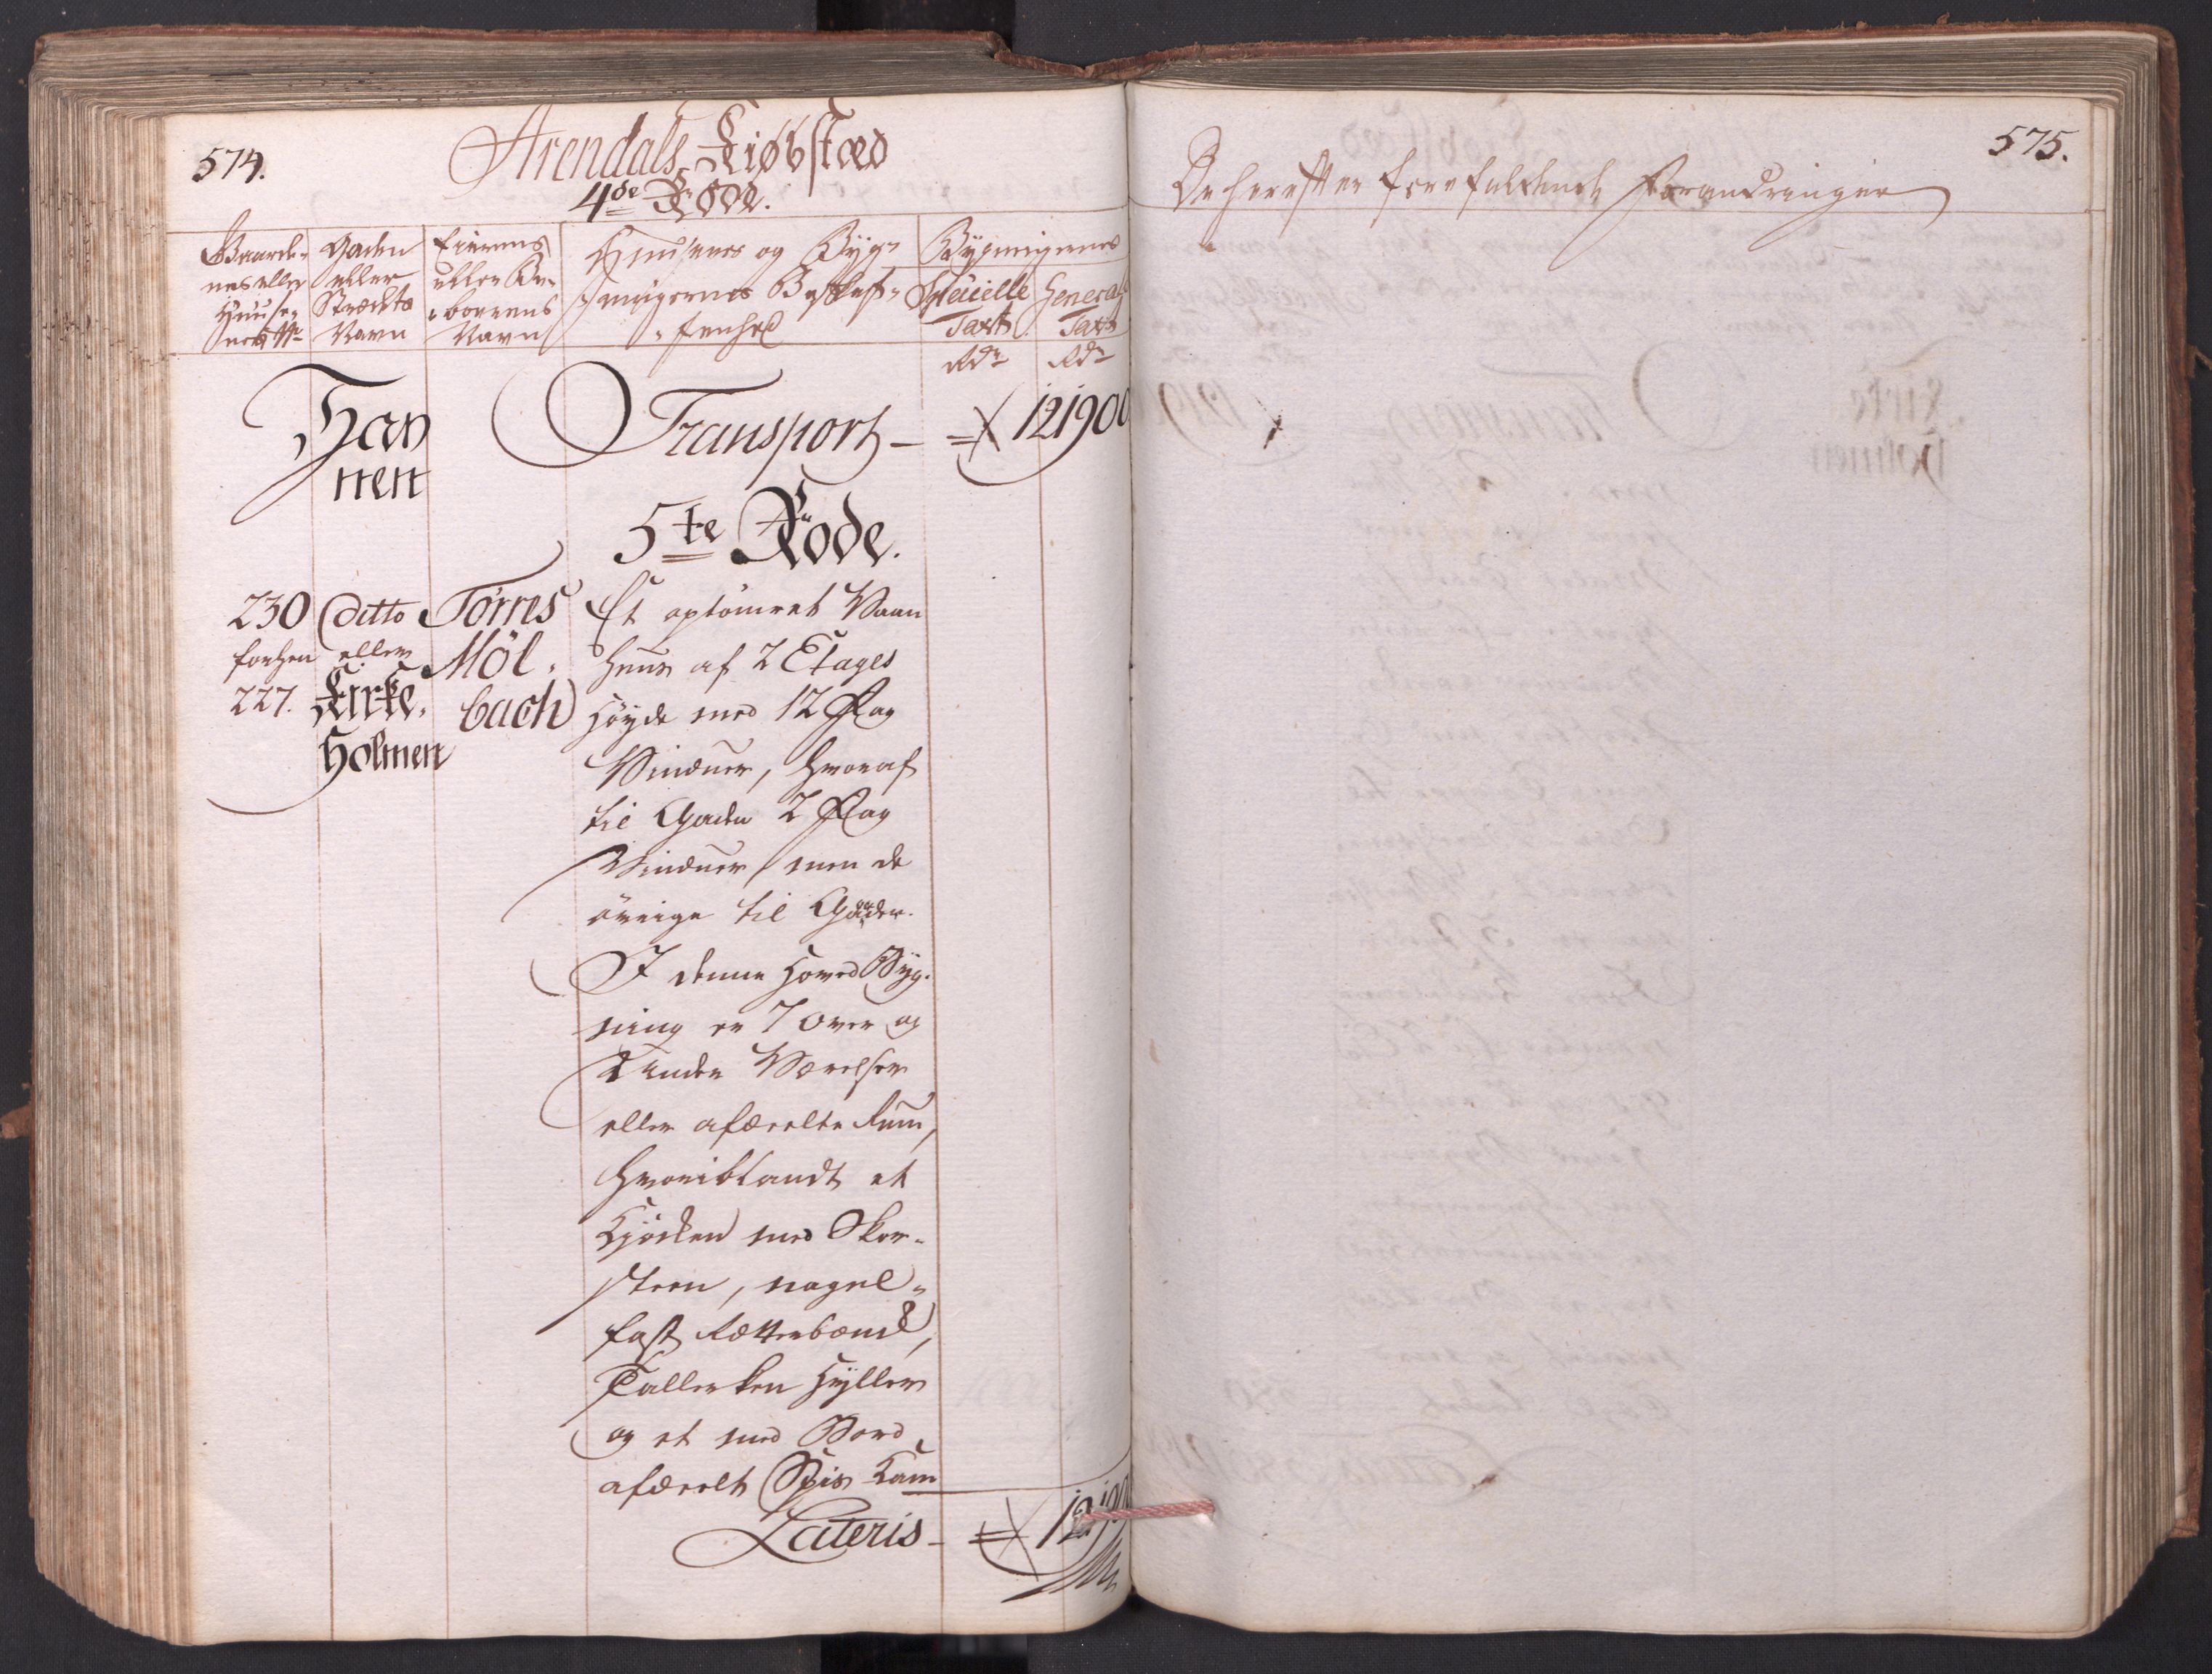 574.
Arendals Kiøbstæd
4de Rode.
Gaarde-
nes eller
Huuse-
nes No
Gaden
eller
Strædets
Navn
Eierens
eller Be-
boerens
Navn
Huusenes og Byg-
ningernes Beskaf-
fenhed
Bygningernes
Speciælle
Taxt
Rdr
General
Taxt
Rdr
Tyan
nen
Transport - = 121900
5te Rode.
230
forhen
227.
ditto
eller
Kirke-
Holmen
Tørres
Möl-
bach
Et optømret Vaan
huus af 2 Etages
Høyde med 12 Fag
Vinduer, hvoraf
til Gaden 2 Fag
Vinduer, men de
øvrige til Gaarden.
I denne Hoved Byg-
ning er 7 over og
under Værelser
eller afdeelte Rum,
hvoriblandt et
Kjøcken med Skor-
steen, nagel-
fast Rettebænk,
Tallerken Hyller
og et med Bord
afdeelt Spis Kam
Lateris - = 121900
575.
De herefter forefaldende Forandringer